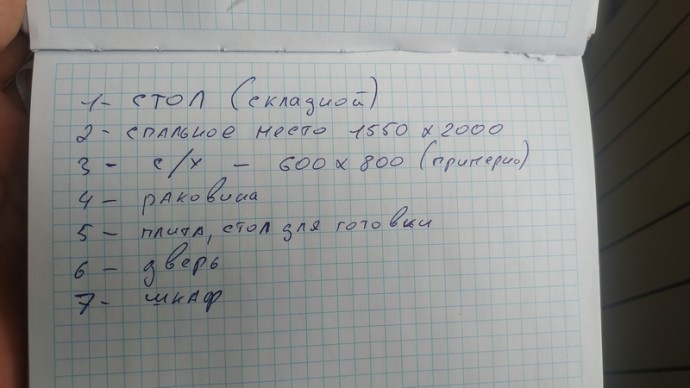 1- СТОЛ (складной)
2- спальное место 1550 х 2000
3 - с/х - 600 х 800 (примерно)
4 - раковина
5 - плита, стол для готовки
6 - дверь
7- шкаф